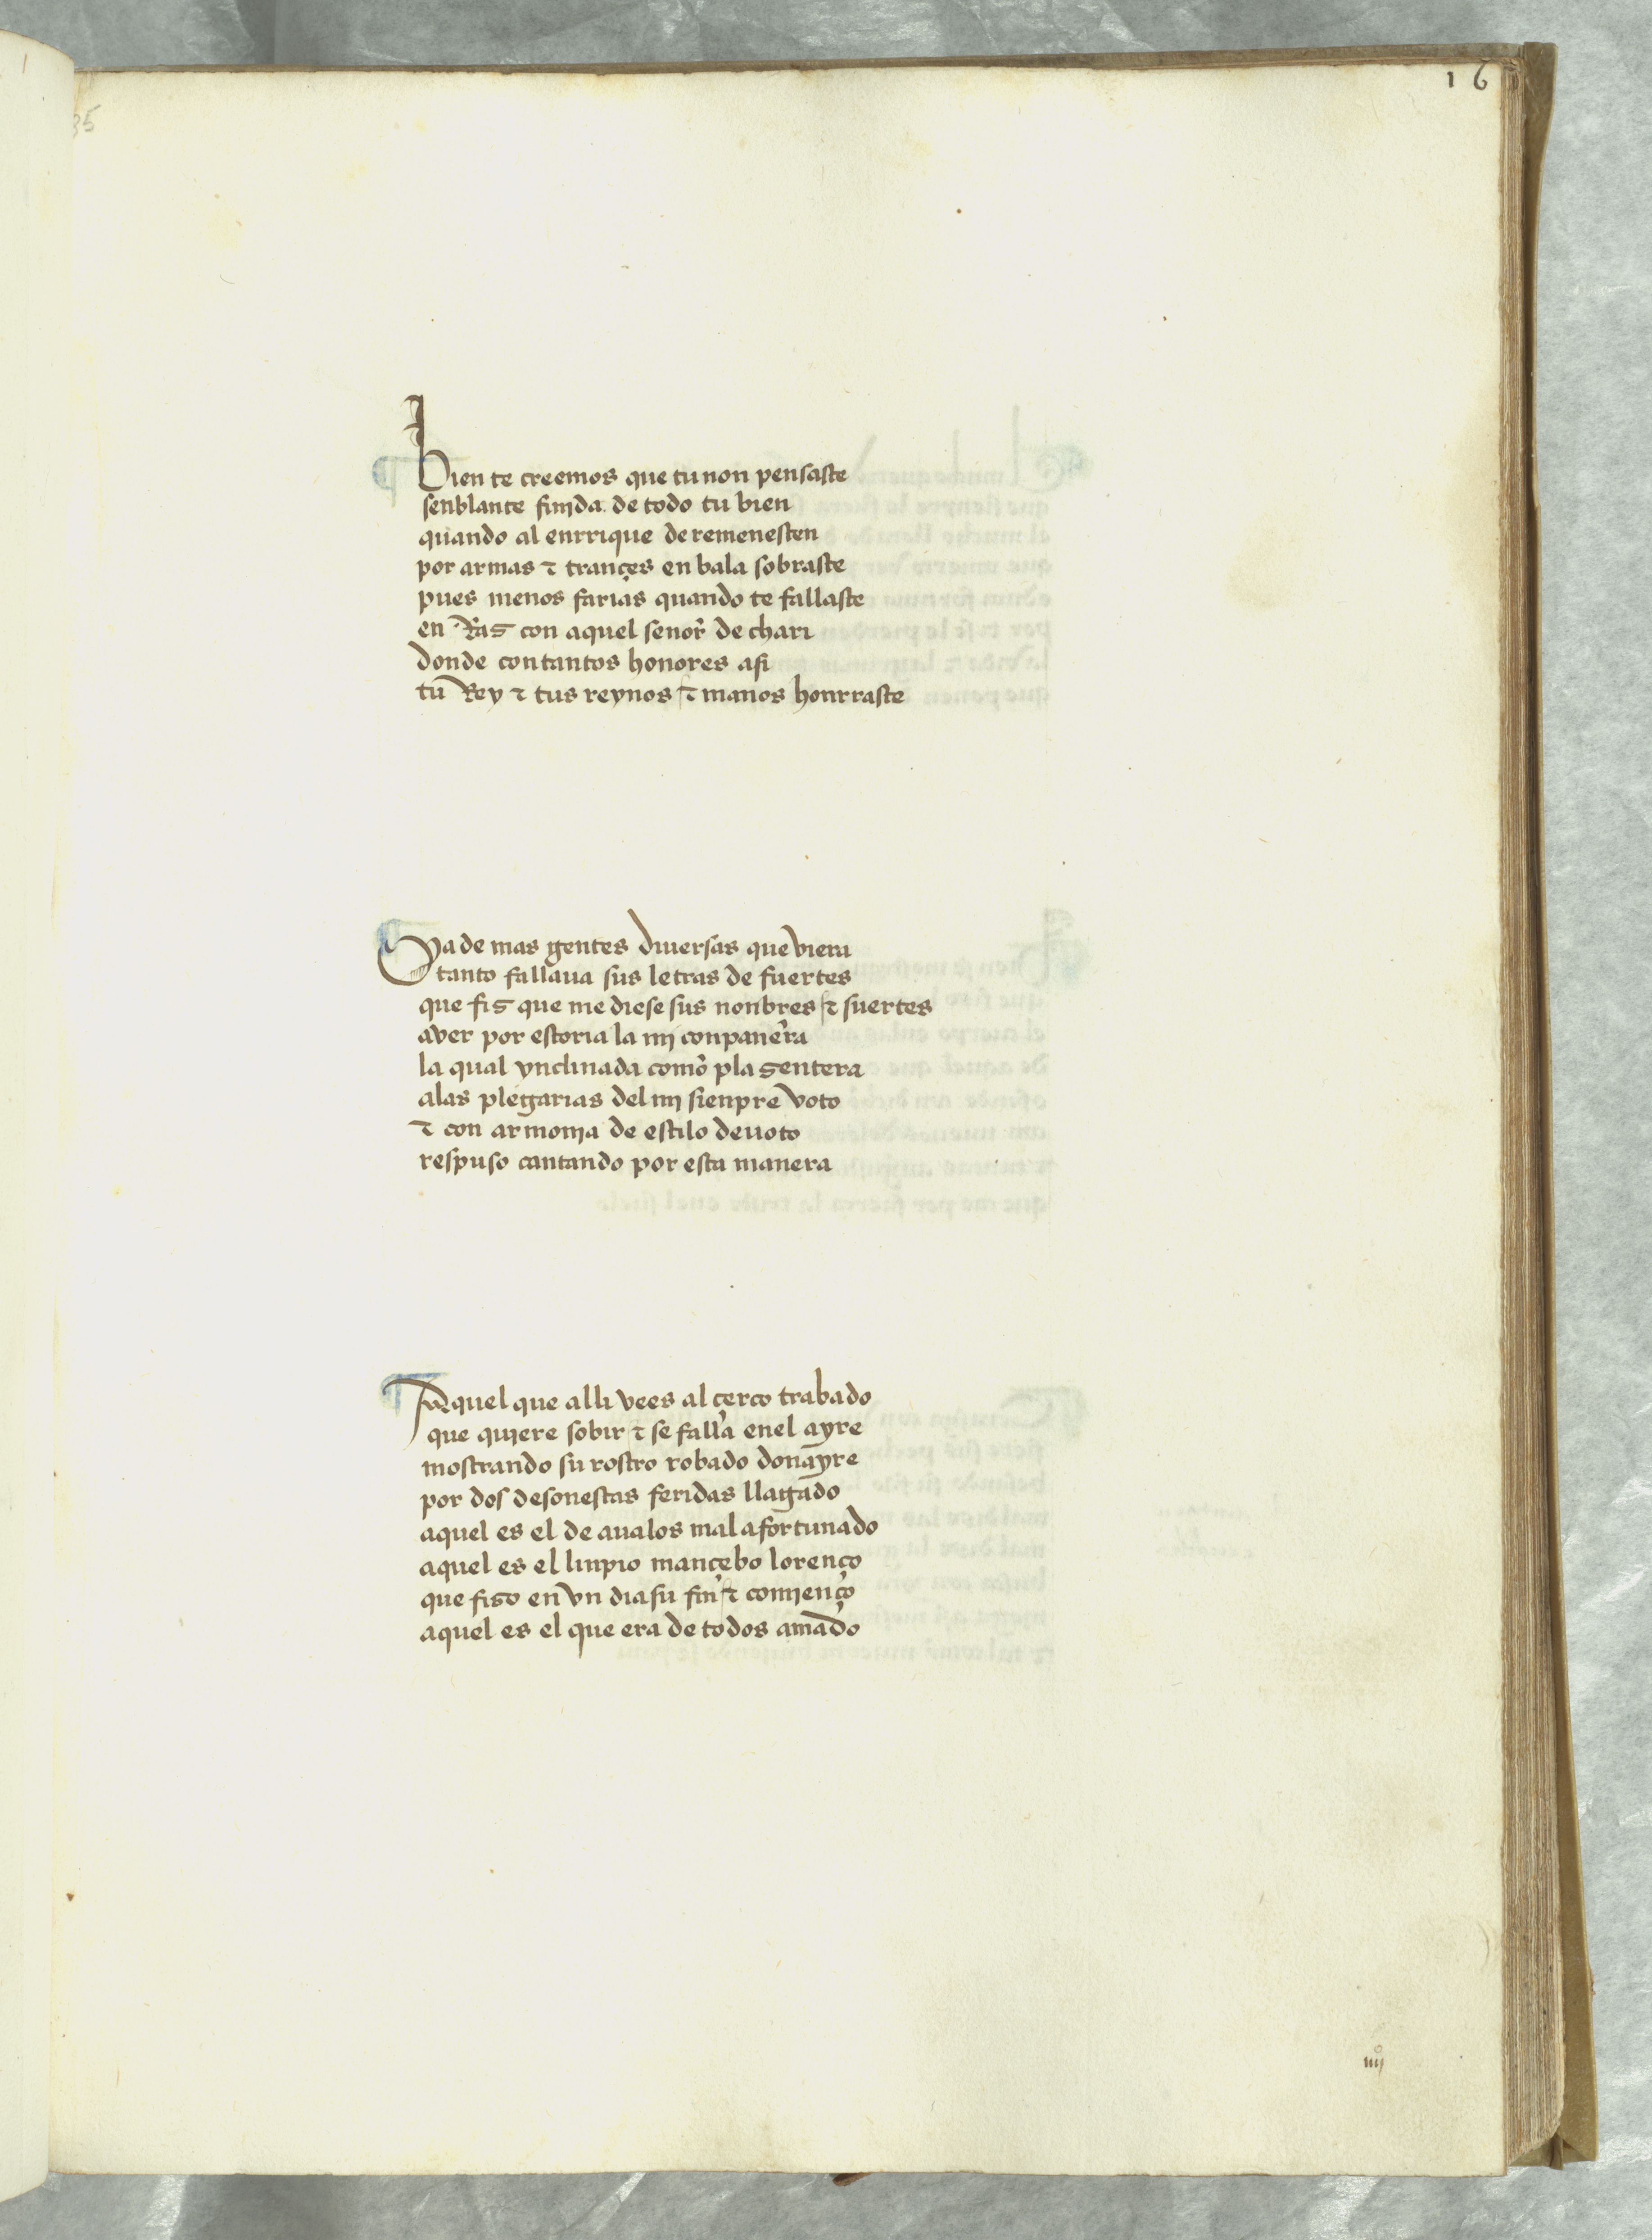 16
bien te creemos que tu non pensaste
senblante finjda de todo tu bien
quando al enrrique de remenesten
por armas τ trançes en bala sobraste
pues menos farias quando te fallaste
en Ras con aquel senor de chari
donde con tantos honores asi
tu Rey τ tus reynos τ manos honrraste
Ya de mas gentes diuersas que viera
tanto fallaua sus letras de fuertes
que fiz que me diese sus nonbres τ suertes
aver por estoria la mj conpanera
la qual ynclinada como plazentera
alas plegarias del mj sienpre voto
τ con armonja de estilo deuoto
respuso cantando por esta manera
Aquel que alli vees al çerco trabado
que qujere sobir τ se falla enel ayre
mostrando su rostro robado donayre
por dos desonestas feridas llagado
aquel es el de aualos mal afortunado
aquel es el linpio mançebo lorenço
que fizo en vn dia su fin τ comjenço
aquel es el que era de todos amado
iiijº